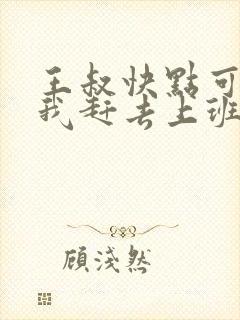 王叔快點可
我赶去上班
顾淺然